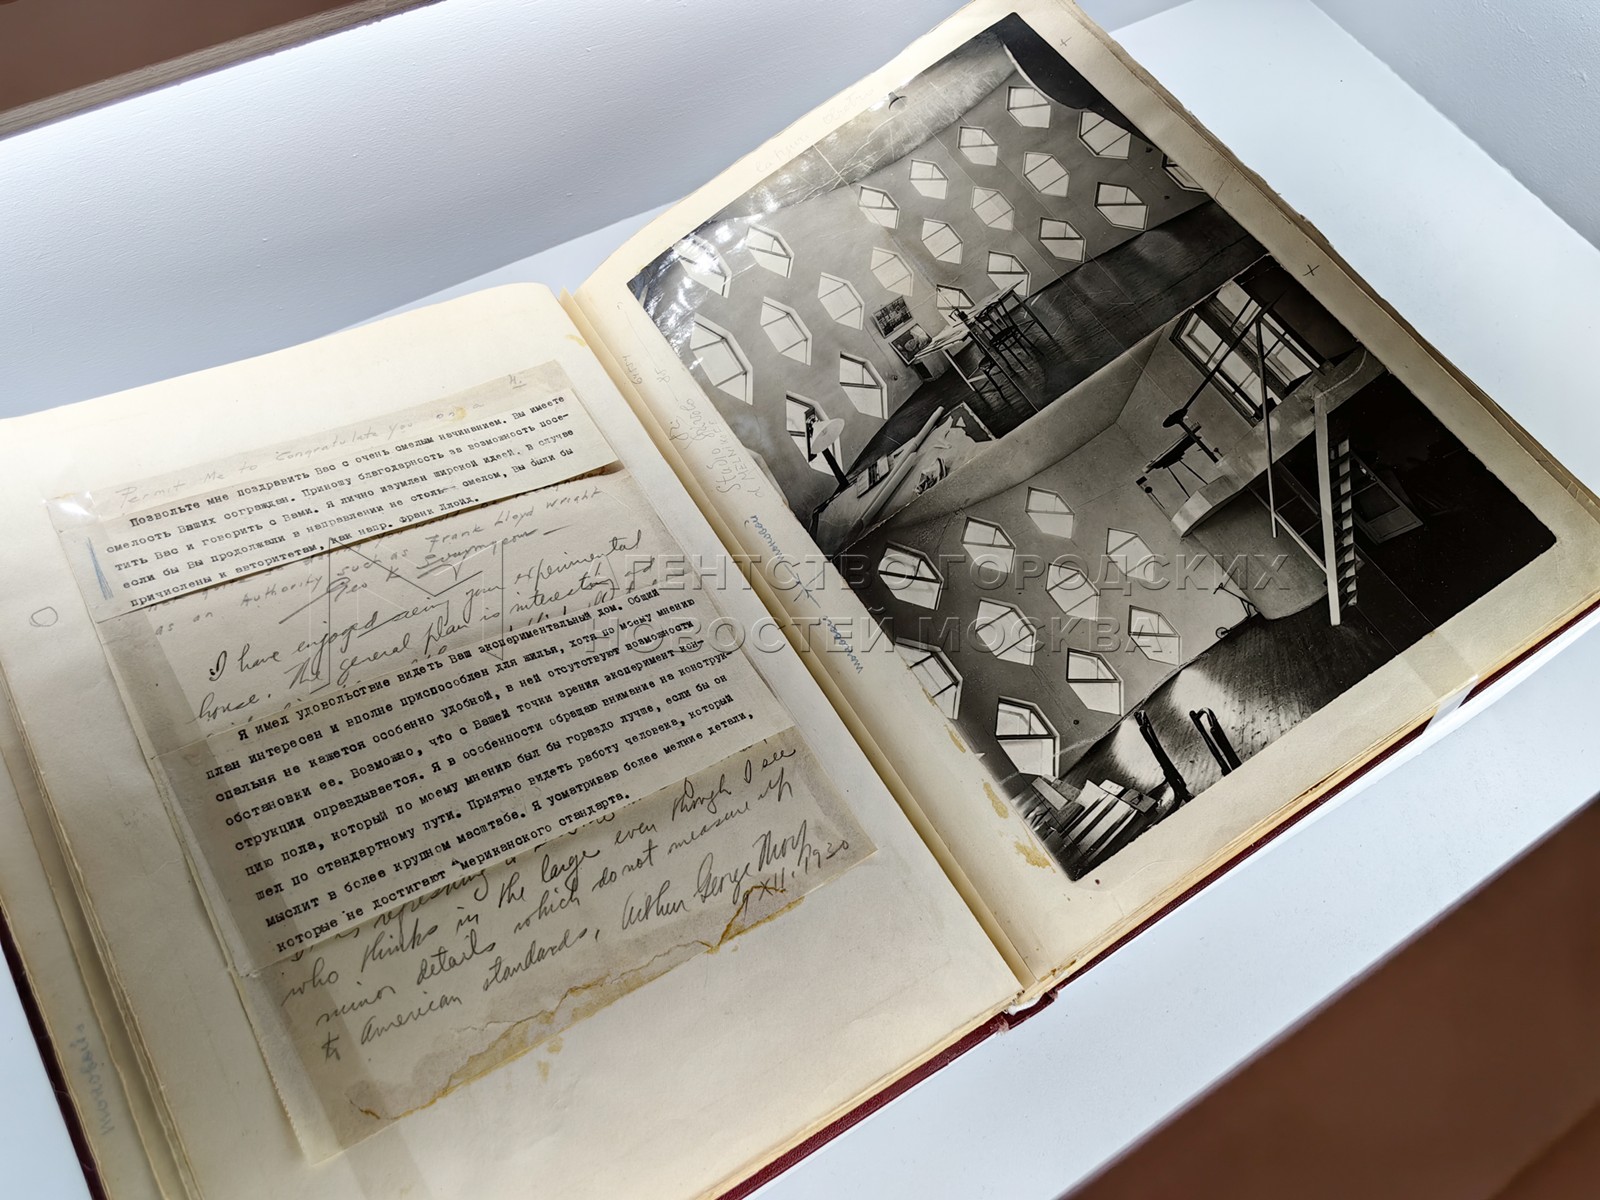 4.
Permit Me to Congratulate you on a
Позвольте мне поздравить Вас с очень смелым начинанием. Вы имеете
смелость Ваших сограждан. Приношу благодарность за возможность посе-
тить Вас и говорить с Вами. Я лично изумлен широкой идеей. В случае
если бы Вы продолжали в направлении не столь смелом, Вы были бы
причислены к авторитетам, как напр. Франк Ллойд.
as an Authority such as Frank Lloyd Wright
Geo K
I have enjoyed seeing your experimental
house. The general plan is interesting
Я имел удовольствие видеть Ваш экспериментальный дом. Общий
план интересен и вполне приспособлен для жилья, хотя по моему мнению
спальня не кажется особенно удобной, в ней отсутствуют возможности
обстановки ее. Возможно, что с Вашей точки зрения эксперимент кон-
струкции оправдывается. Я в особенности обращаю внимание на конструк-
цию пола, который по моему мнению был бы гораздо лучше, если бы он
шел по стандартному пути. Приятно видеть работу человека, который
мыслит в более крупном масштабе. Я усматриваю более мелкие детали,
которые не достигают американского стандарта.
who thinks in the large even though I see
minor details which do not measure up
to American standards. Arthur George
9.XII.1930
АГЕНТСТВО ГОРОДСКИХ
НОВОСТЕЙ МОСКВА